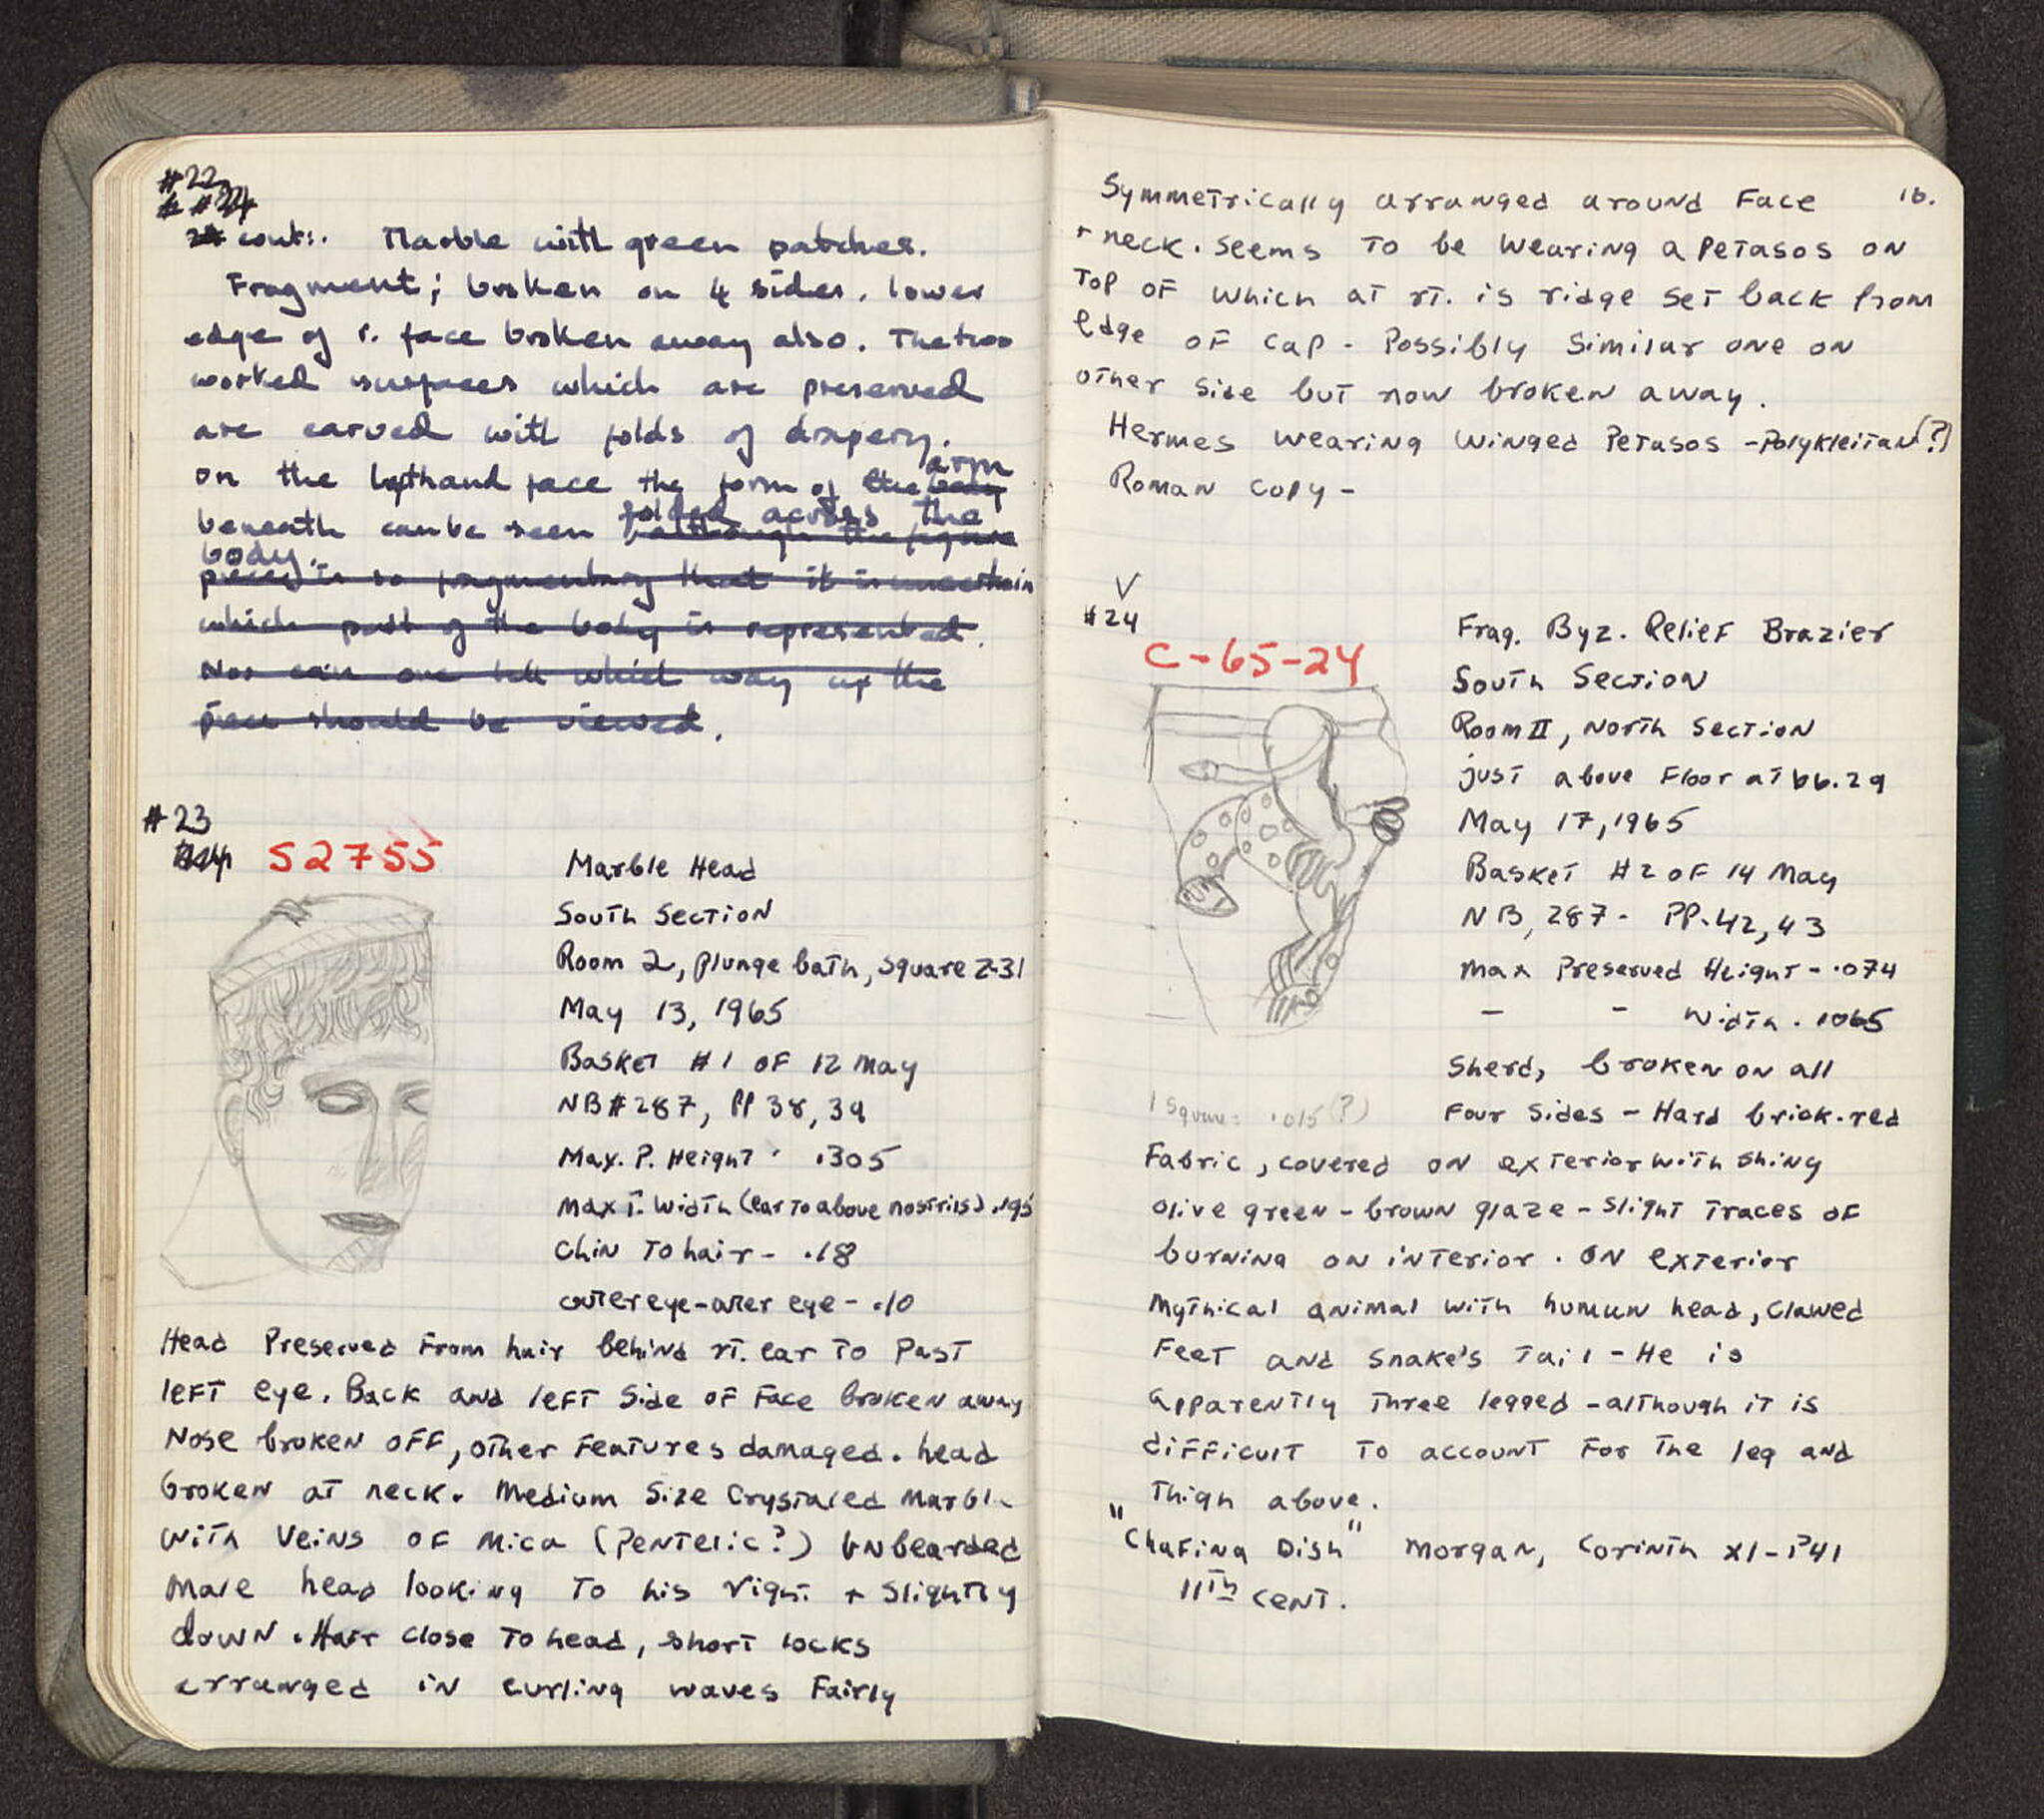 #22
& #24
24 cont:. Marble with green patches.
Fragment; broken on 4 sides. lower
edge of r. face broken away also. The two
worked surfaces which are preserved
are carved with folds of drapery.
on the lefthand face the form of the body arm
beneath can be seen although the figure folded across the
body.
piece is so fragmentary that it is uncertain
which part of the body is represented.
Nor can one tell which way up the
piece should be viewed.
#23
S2755
Marble Head
South Section
Room 2, plunge bath, square Z-31
May 13, 1965
Basket #1 of 12 May
NB#287, PP 38, 39
Max. P. Height · .305
Max P. Width (ear to above nostrils) .195
Chin to hair - .18
outer eye-outer eye - .10
Head Preserved From hair behind rt. ear to Past
left eye. Back and left Side of Face broken away
Nose broken off, other Features damaged. head
broken at neck. Medium Size Crystaled Marble
with Veins of Mica (Pentelic?) Unbearded
male head looking to his right + slightly
down. Hair close to head, short locks
arranged in curling waves Fairly
16.
Symmetrically arranged around Face
+ neck. Seems to be wearing a Petasos on
Top of which at rt. is ridge set back from
edge of cap - Possibly Similar one on
other side but now broken away.
Hermes wearing winged Petasos - Polykleitan (?)
Roman copy -
V
#24
C-65-24
Frag. Byz. Relief Brazier
South Section
Room II, North Section
just above Floor at 66.29
May 17, 1965
Basket #2 of 14 May
NB, 287 - PP. 42, 43
Max Preserved Height - .074
- - Width . 1065
Sherd, broken on all
1 Square = .015 (?)
Four Sides - Hard brick-red
Fabric, covered on exterior with shiny
olive green - brown glaze - Slight traces of
burning on interior. On exterior
Mythical animal with human head, clawed
Feet and snake's tail - He is
apparently three legged - although it is
difficult to account for the leg and
thigh above.
"Chafing Dish" Morgan, Corinth XI - P41
11th cent.